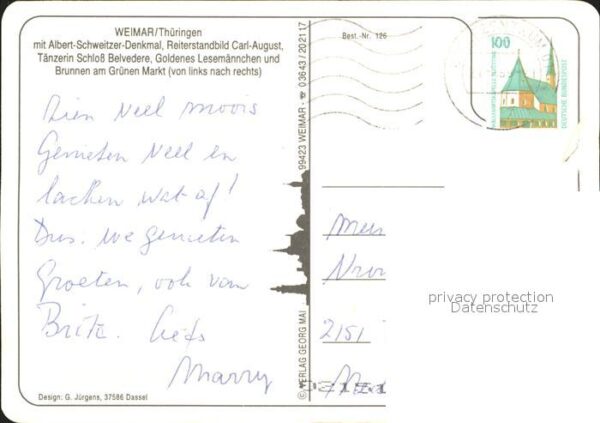 WEIMAR/Thüringen
mit Albert-Schweitzer-Denkmal, Reiterstandbild Carl-August,
Tänzerin Schloß Belvedere, Goldenes Lesemännchen und
Brunnen am Grünen Markt (von links nach rechts)
Best.-Nr. 126
100
DEUTSCHE BUNDESPOST
Zien veel moois
Genieten veel en
lachen wat af!
Dus: we genieten
Groeten, ook van
Brite. Liefs
Marry
© VERLAG GEORG MAI · 99423 WEIMAR · ☎ 03643 / 202117
2151
privacy protection
Datenschutz
Design: G. Jürgens, 37586 Dassel